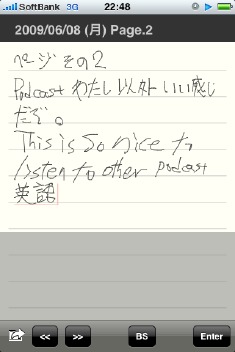 SoftBank 3G 22:48
2009/06/08 (月) Page.2
ページ その2
Podcast わたし以外いい感じ
だぞ。
This is so nice to
listen to other podcast
英語
<< >> BS Enter